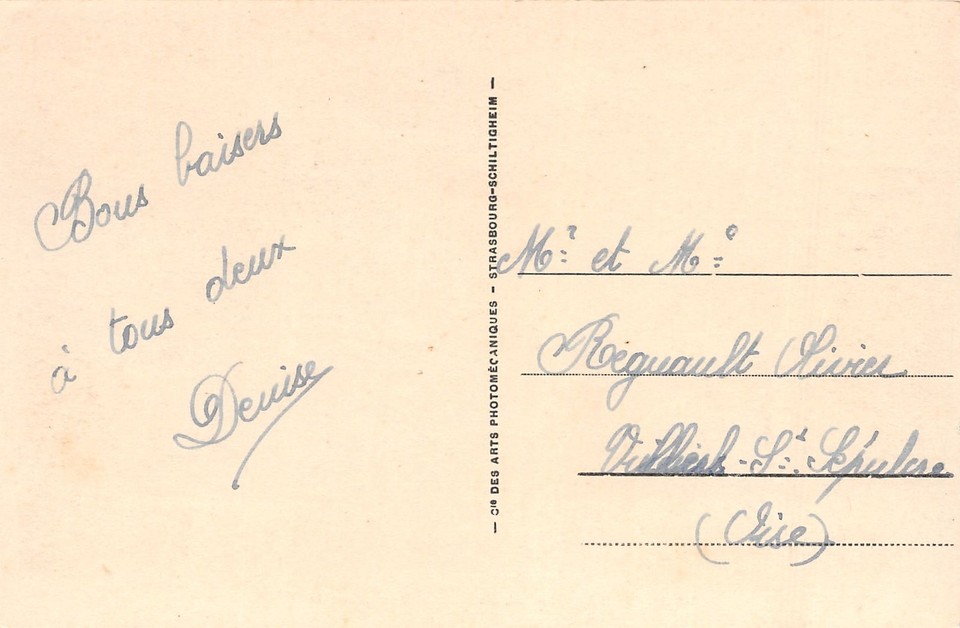 Bons baisers
à tous deux
Denise
— Cie DES ARTS PHOTOMÉCANIQUES – STRASBOURG-SCHILTIGHEIM —
Mr et Me
Regnault Olivier
Villiers-St Sépulcre
(Oise)